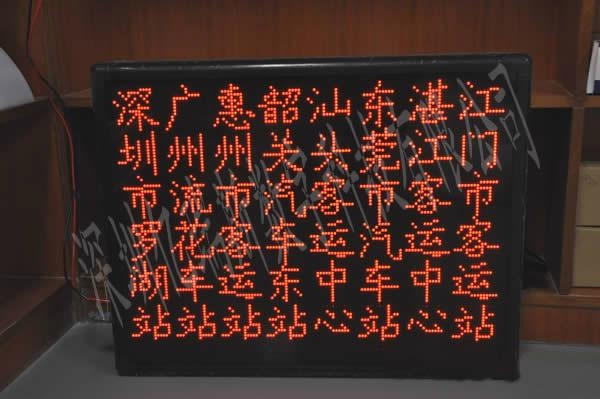 深圳市罗湖站
广州流花车站
惠州市客运站
韶关汽车东站
汕头客运中心
东莞市汽车站
湛江客运中心
江门市客运站
深圳数字科技有限公司